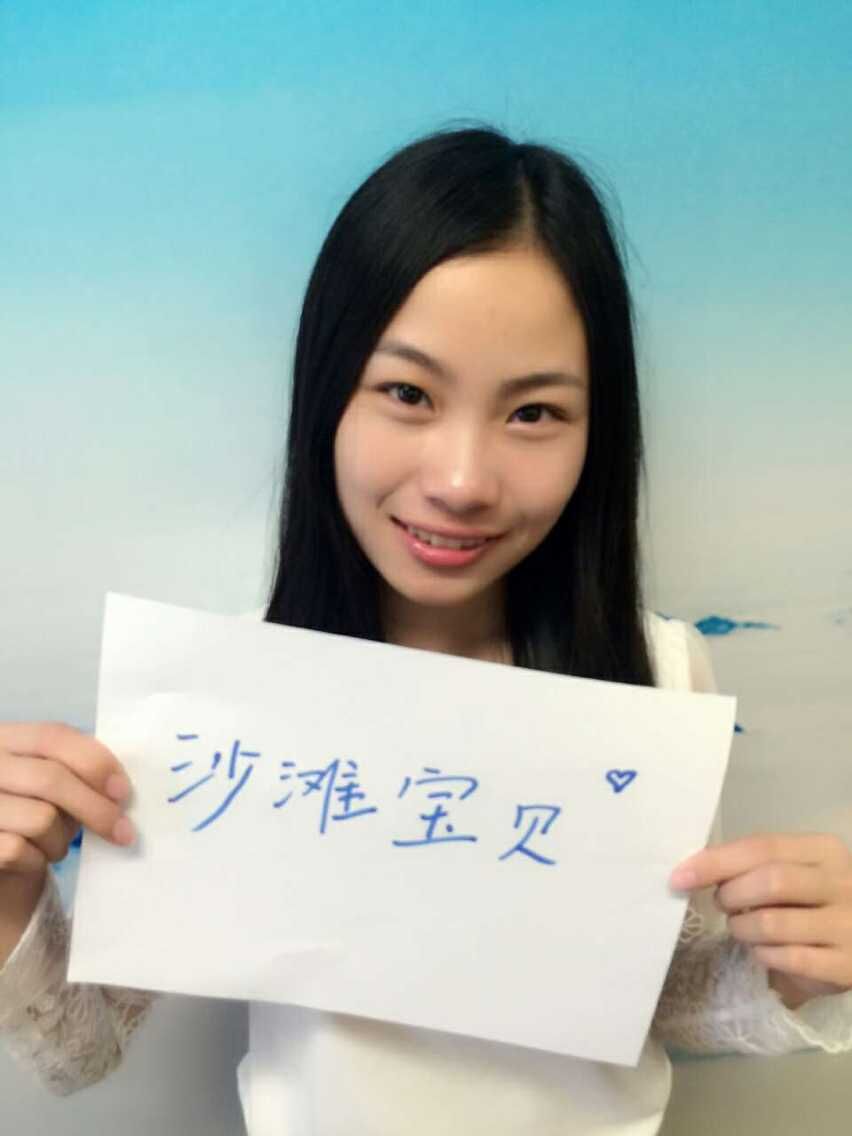 沙滩宝贝♡